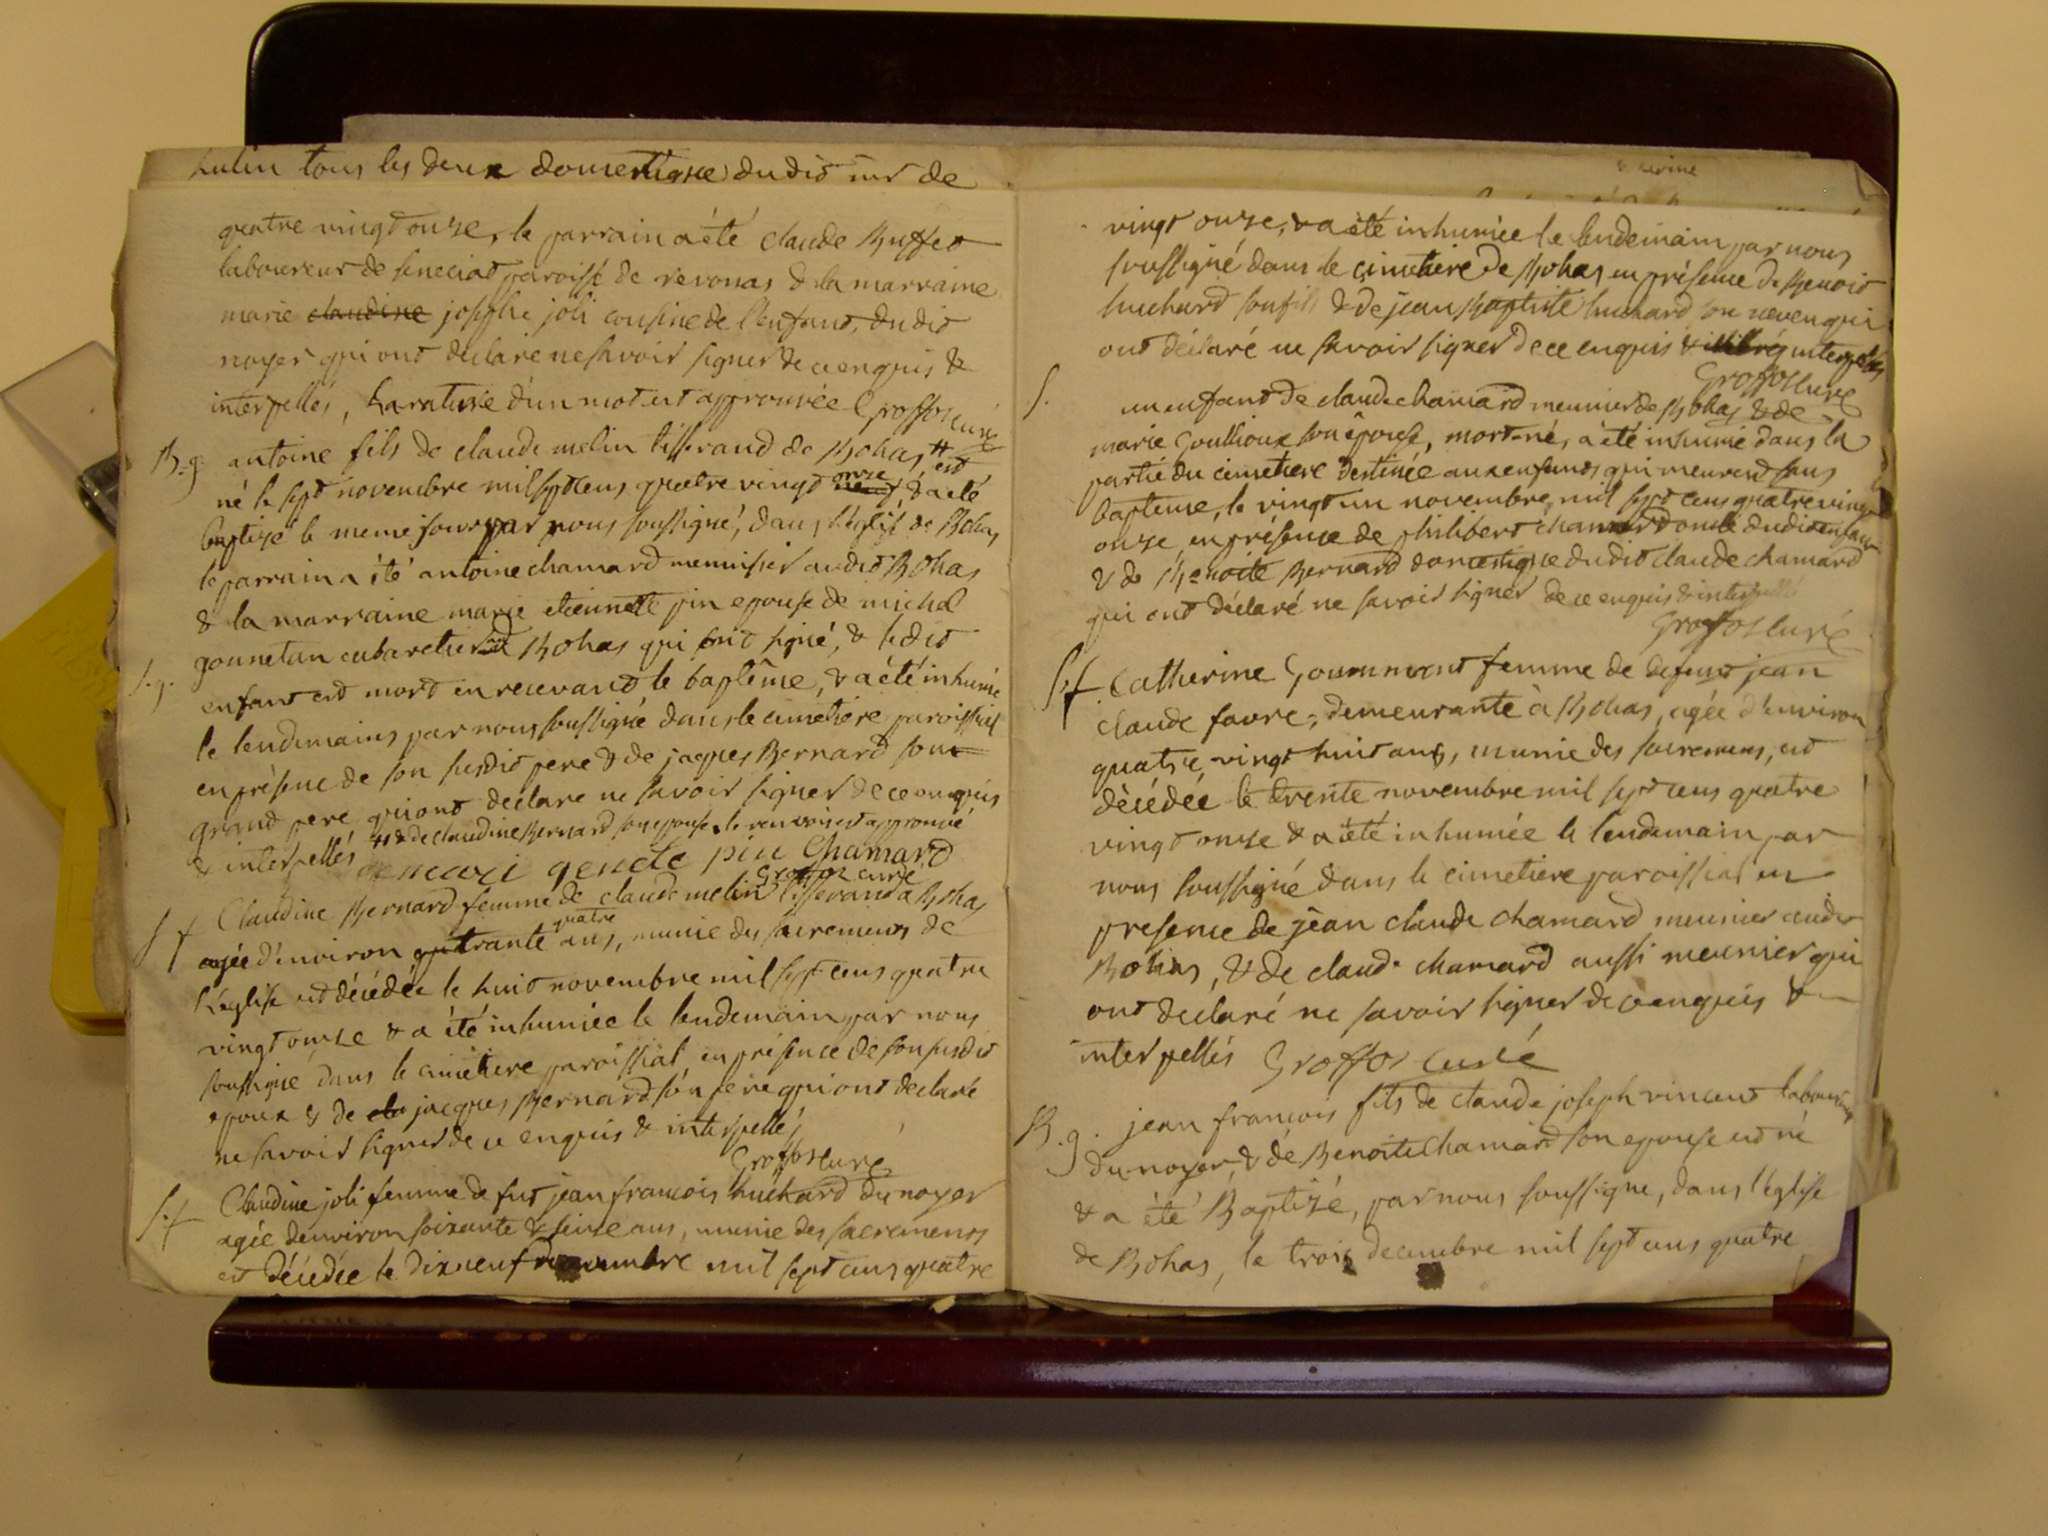 tous les deux domestique dudit sr de
quatre vingt onze, le parrain a été claude Buffet
laboureur de seneciat paroisse de revonas & la marraine
marie claudine josephe joli cousine de l'enfant, dudit
noyer qui ont déclaré ne savoir signer de ce enquis &
interpellés, La rature d'un mot est approuvée Groffoz curé
B. g. antoine fils de claude melin tisserand de Bohas # est
né le sept novembre mil sept cens quatre vingt onze, & a été
baptisé le meme jour par nous soussigné, dans l'église de Bohas
le parrain a été antoine chamard menuisier audit Bohas
& la marraine marie etiennette pin epouse de michel
gonnetan cabaretier a Bohas qui ont signé, & ledit
S. g. enfant est mort en recevant le baptême, & a été inhumé
le lendemains par nous soussigné dans le cimetiere paroissial
en présence de son susdit pere & de jacques Bernard son
grand pere qui ont déclaré ne savoir signer de ce enquis
& interpellés # & de claudine Bernard son epouse, le renvoi est approuvé
pin Chamard
Groffoz curé
S f Claudine Bernard femme de claude melin tisserand a Bohas
agée d'environ quatrante quatre ans, munie des sacremens de
L'église est décédée le huit novembre mil sept cens quatre
vingt onze & a été inhumée le lendemain par nous
soussigné dans le cimetiere paroissial en présence de son susdit
epoux & de jacques Bernard son pere qui ont declaré
ne savoir signer de ce enquis & interpellés
Groffoz curé
S. f Claudine joli femme de fut jean francois huchard du noyer
agée d'environ soixante & seize ans, munie des sacremens
est décédée le dix neuf novembre mil sept cens quatre
vingt onze, & a été inhumée le lendemain par nous
soussigné dans le cimetiere de Bohas, en présence de Benoit
huchard son fils & de jean Baptiste huchard son neveu qui
ont déclaré ne savoir signer de ce enquis & interpellés
Groffoz curé
S. un enfant de claude chamard meunier de Bohas & de
marie Goullioux son épouse, mort-né, a été inhumé dans la
partie du cimetiere destinée aux enfants qui meurent sans
baptême, le vingt un novembre mil sept cens quatre vingt
onze en présence de philibert chamard oncle dudit enfant
& de Benoite Bernard domestique dudit claude chamard
qui ont déclaré ne savoir signer de ce enquis & interpellé
Groffoz curé
S. f Catherine femme de defunt jean
claude favre, demeurante à Bohas, agée d'environ
quatre vingt huit ans, munie des sacremens, est
décédée le trente novembre mil sept cens quatre
vingt onze & a été inhumée le lendemain par
nous soussigné dans le cimetiere paroissial en
presence de jean claude chamard meunier audit
Bohas, & de claude chamard aussi meunier qui
ont déclaré ne savoir signer de ce enquis &
interpellés Groffoz curé
B. g. jean francois fils de claude joseph vincent laboureur
du noyer, & de Benoite Chamard son epouse est né
& a été Baptisé, par nous soussigne, dans l'église
de Bohas, le trois decembre mil sept cens quatre